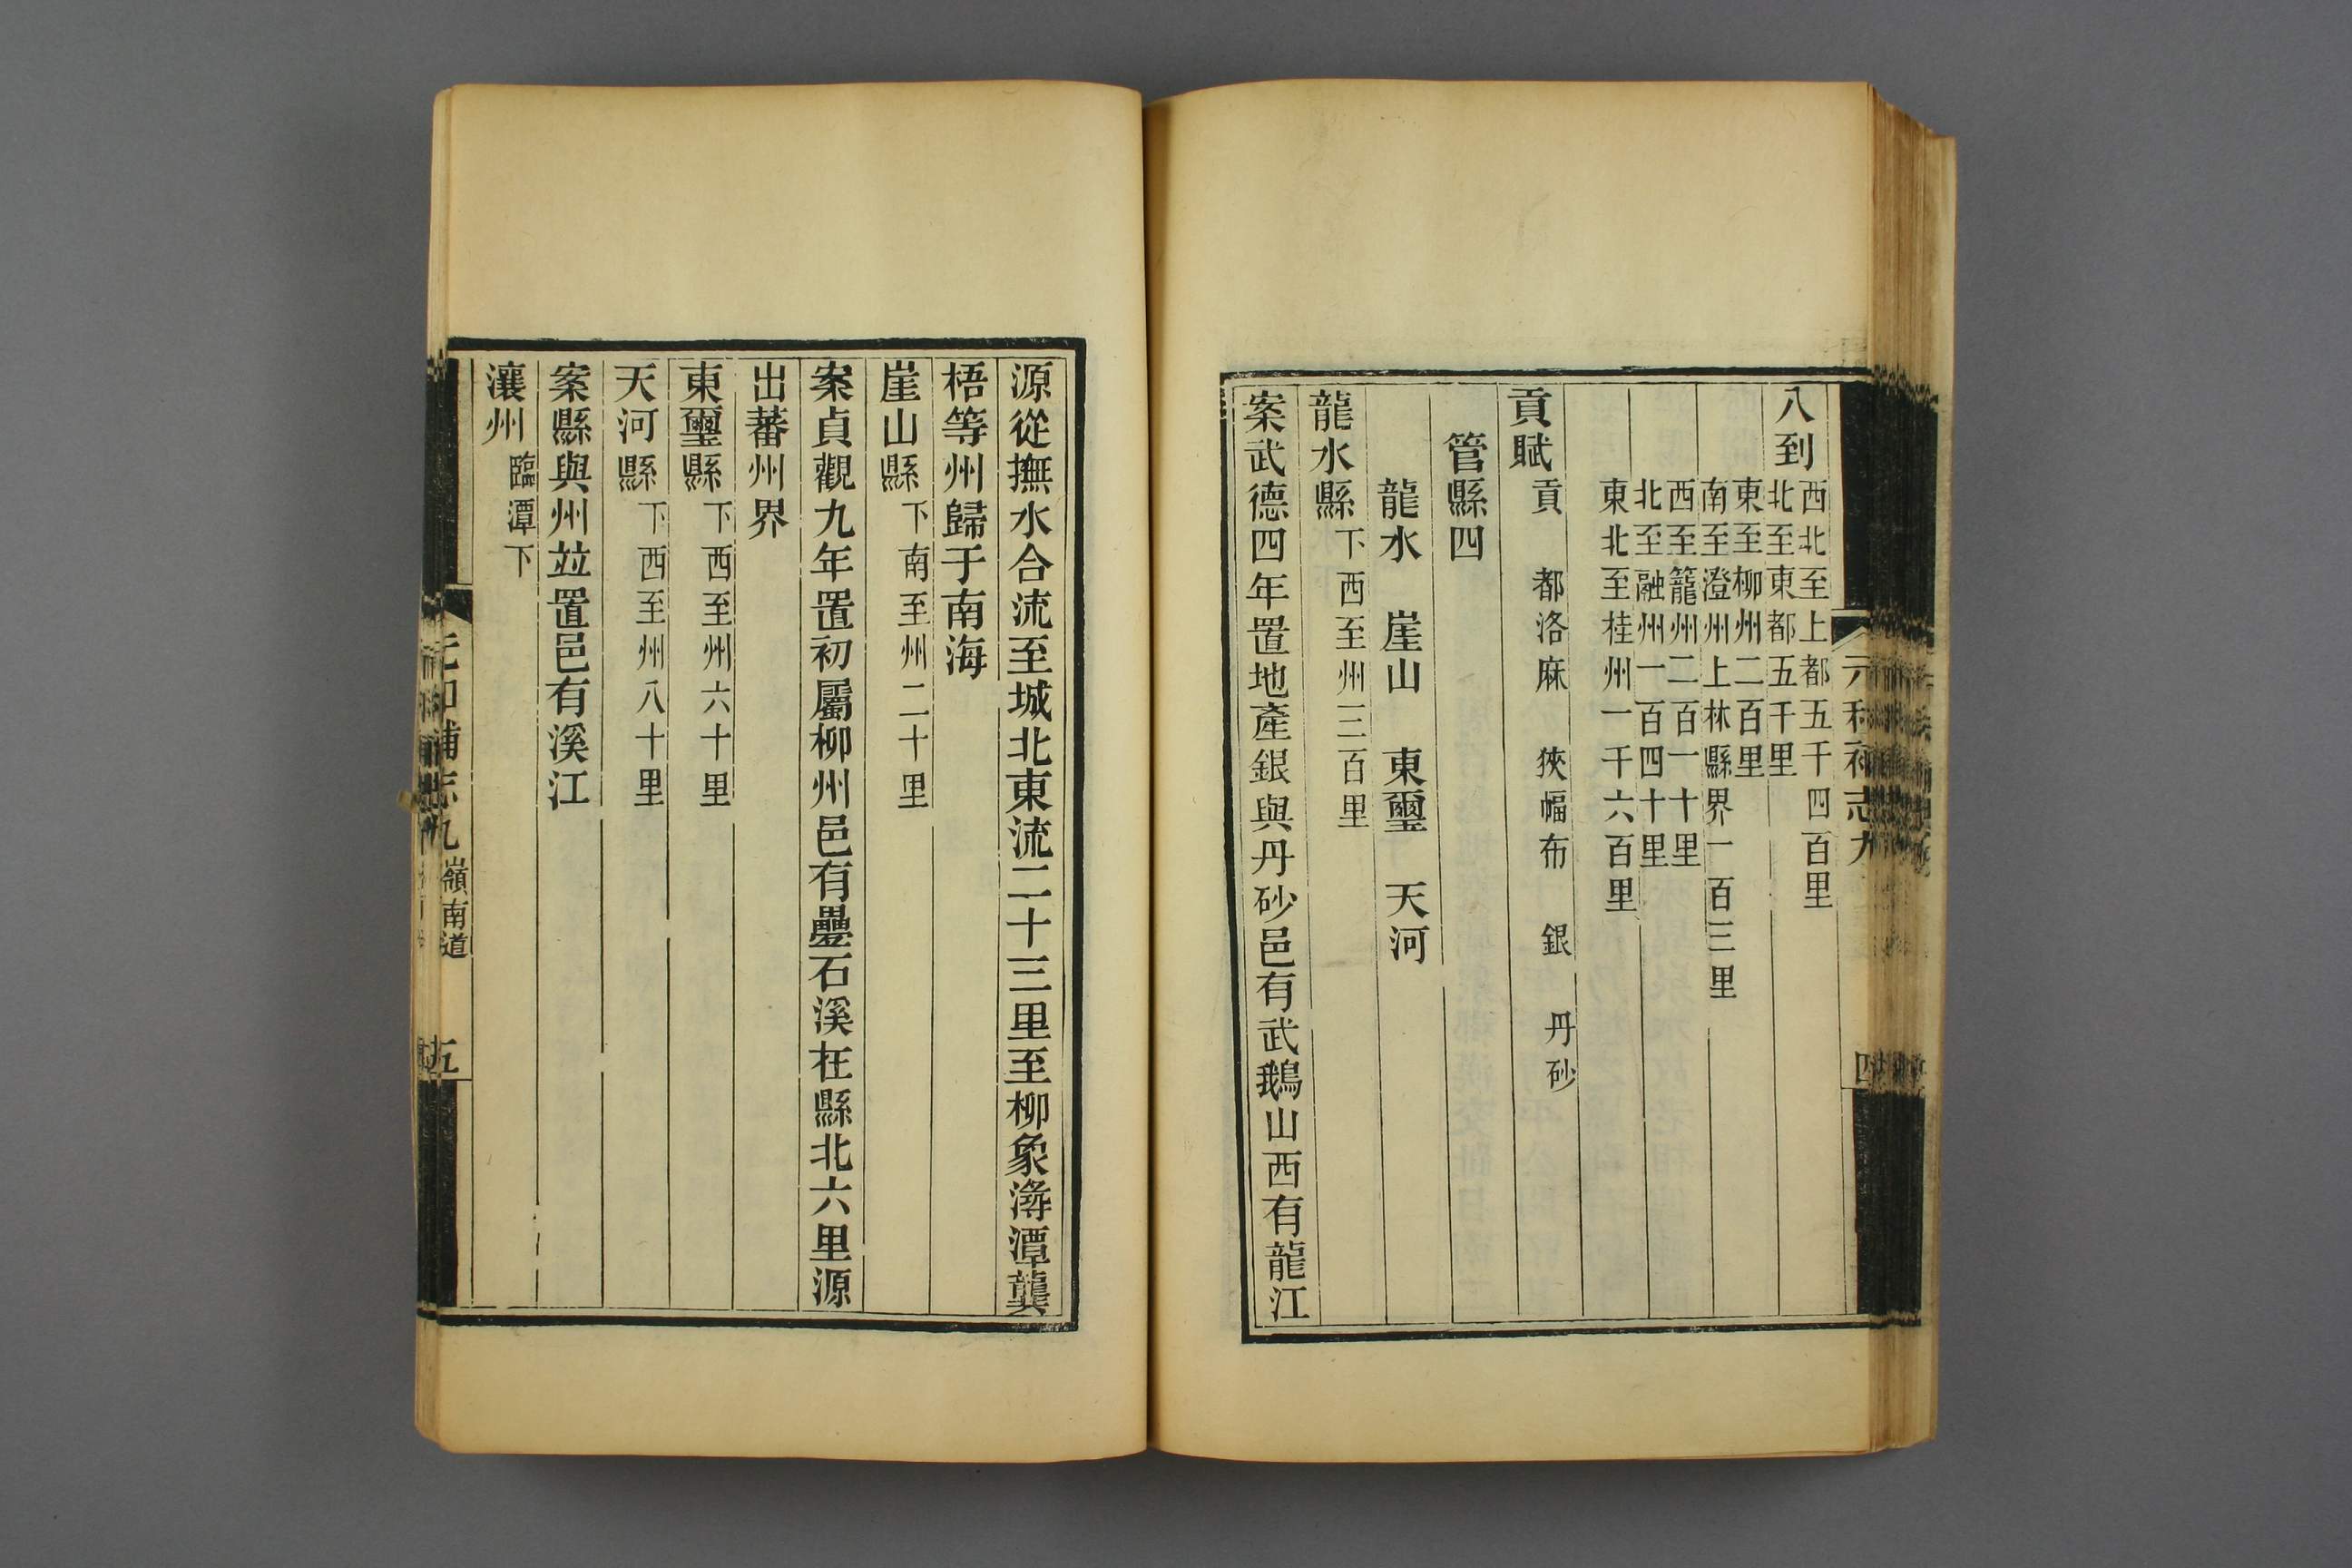 八到西北至上都五千四百里
北至東都五千里
東至柳州二百里
南至澄州上林縣界一百三里
西至籠州二百一十里
北至融州一百四十里
東北至桂州一千六百里
貢賦貢 都洛麻 狹幅布 銀 丹砂
管縣四
龍水 崖山 東璽 天河
龍水縣下西至州三百里
案武德四年置地產銀與丹砂邑有武鵝山西有龍江
元和補志九
四
源從撫水合流至城北東流二十三里至柳象潯潭龔
梧等州歸于南海
崖山縣下南至州二十里
案貞觀九年置初屬柳州邑有疊石溪在縣北六里源
出蕃州界
東璽縣下西至州六十里
天河縣下西至州八十里
案縣與州竝置邑有溪江
瀼州臨潭下
元和補志九 嶺南道
五